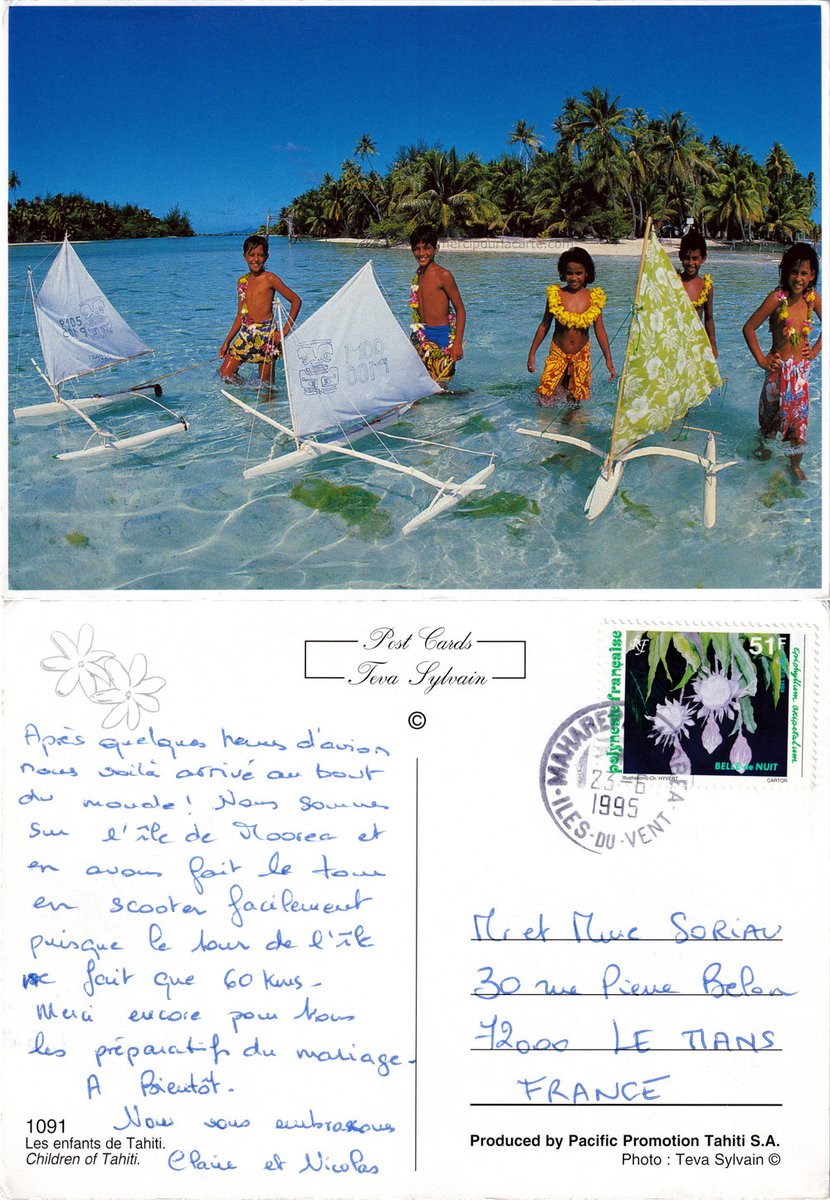 mercipourlacarte.com
Post Cards
Teva Sylvain
©
RF
polynésie française
51F
Epiphyllum oxypetalum
BELLE de NUIT
Illustration-D-Ch. HYVERT
CARTOR
MAHAREPA MOOREA
23-6
1995
ILES-DU-VENT
Après quelques heures d'avion
nous voilà arrivé au bout
du monde! Nous sommes
sur l'île de Moorea et
en avons fait le tour
en scooter facilement
puisque le tour de l'île
ne fait que 60 Kms.
Merci encore pour tous
les préparatifs du mariage.
A Bientôt.
Nous vous embrassons
Claire et Nicolas
Mr et Mme SORIAU
30 rue Pierre Belon
72000 LE MANS
FRANCE
1091
Les enfants de Tahiti.
Children of Tahiti.
Produced by Pacific Promotion Tahiti S.A.
Photo : Teva Sylvain ©